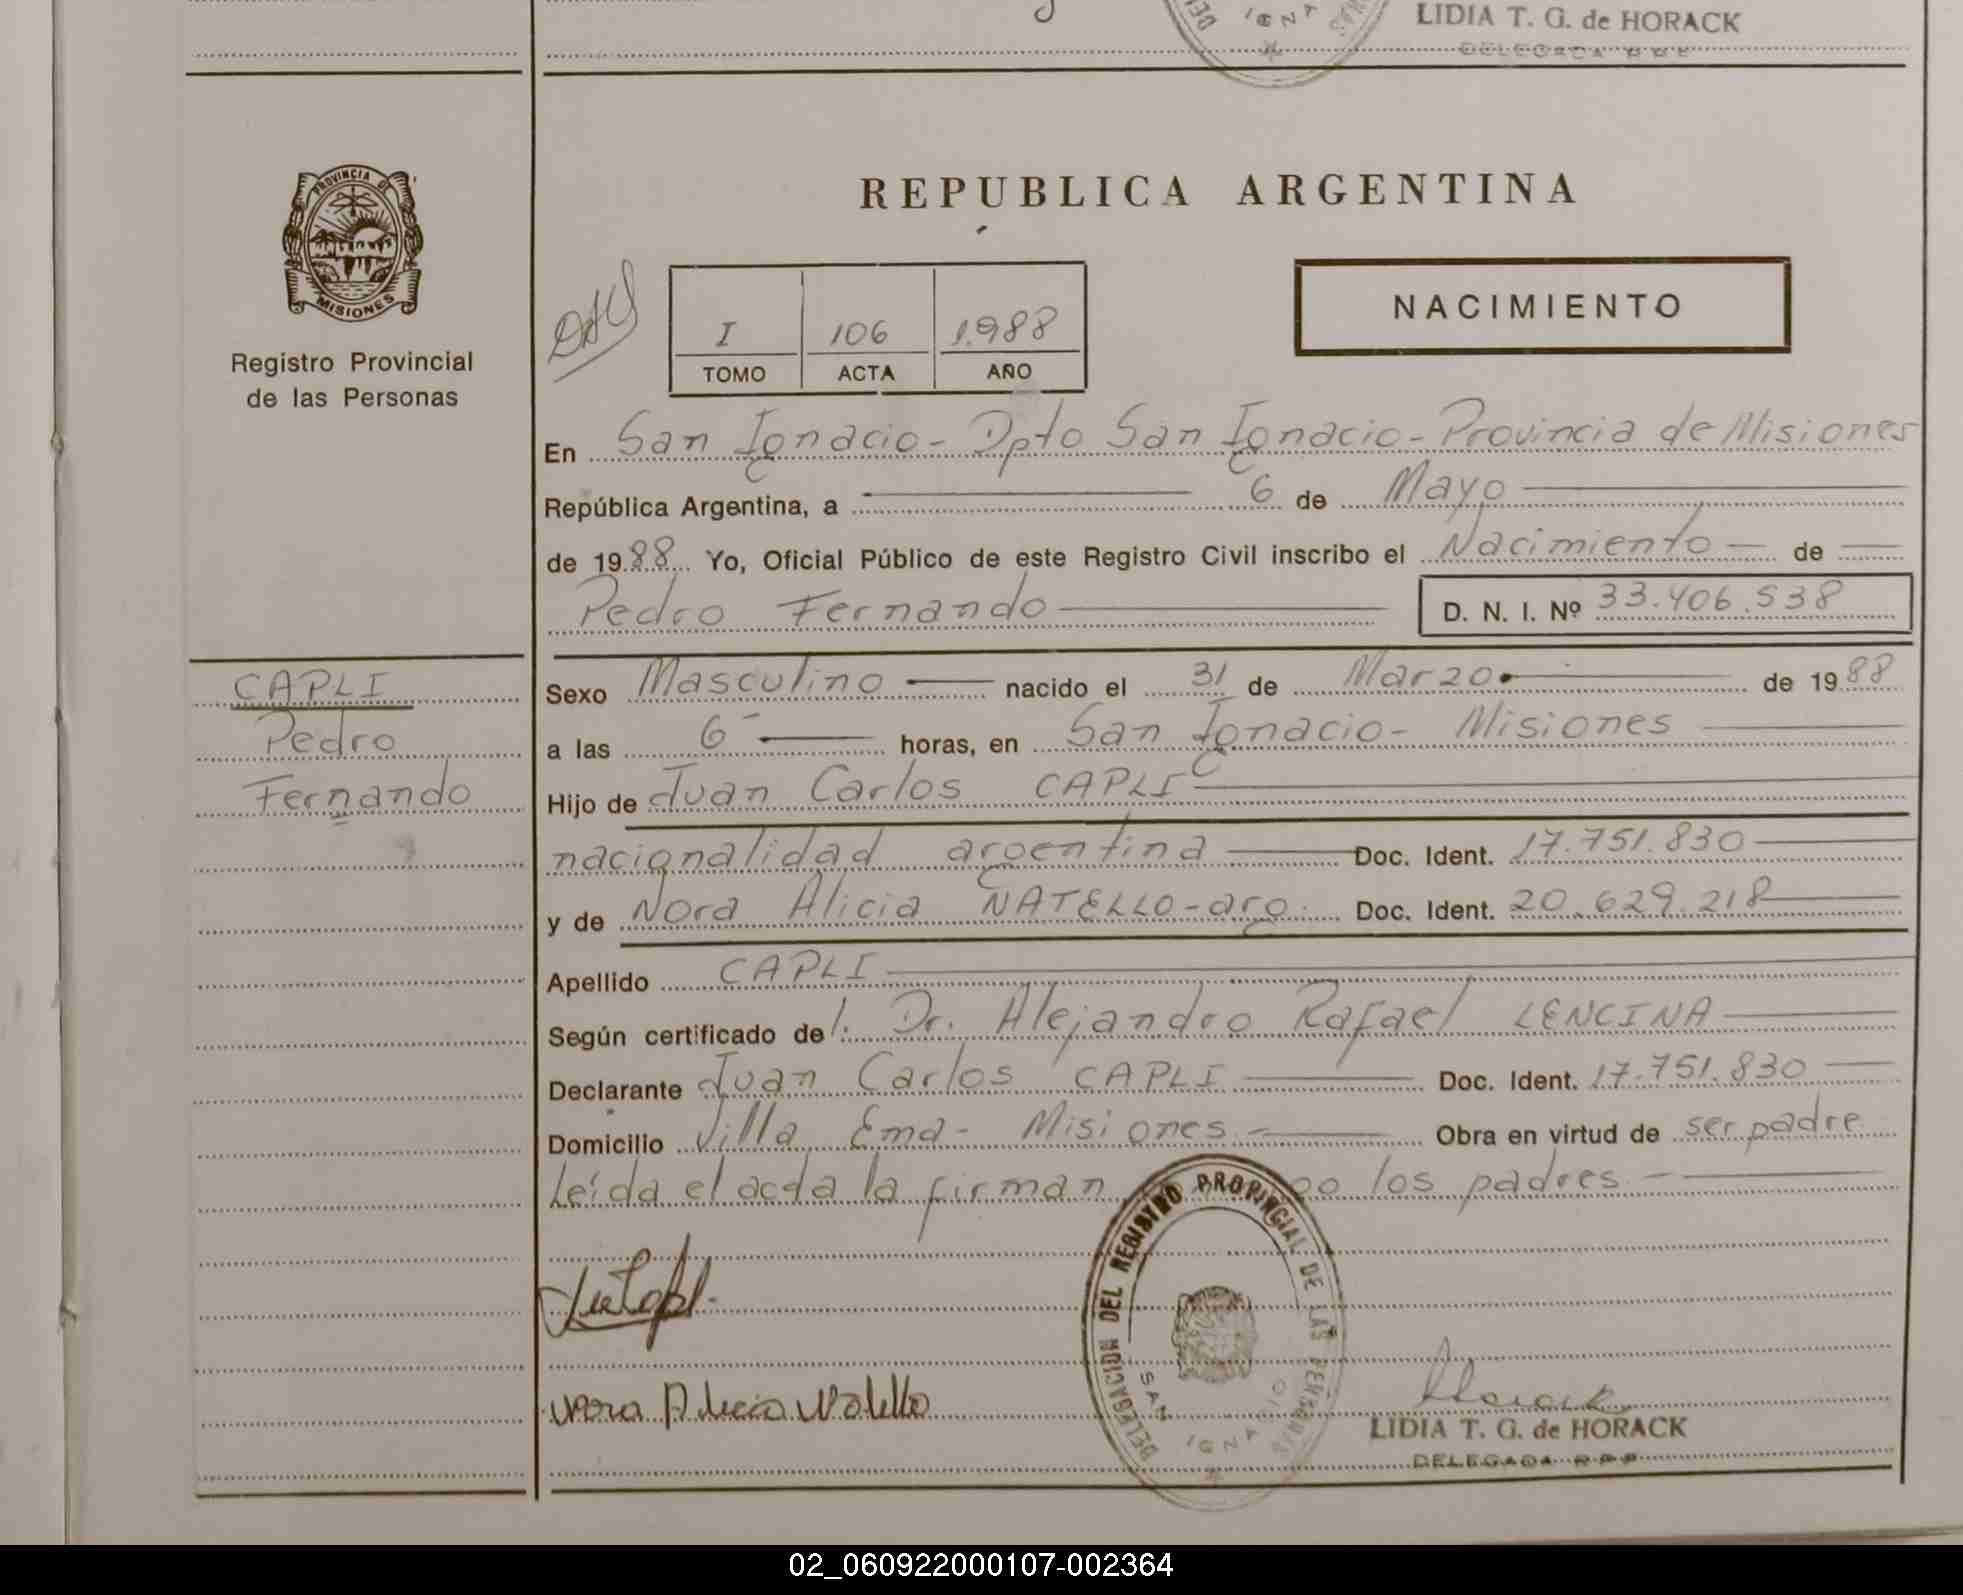 LIDIA T. G. de HORACK
DELEGADA R P P
PROVINCIA DE
MISIONES
Registro Provincial
de las Personas
REPUBLICA ARGENTINA
I 106 1.988
TOMO ACTA AÑO
NACIMIENTO
En San Ignacio - Dpto San Ignacio - Provincia de Misiones
República Argentina, a 6 de Mayo
de 1988 Yo, Oficial Público de este Registro Civil inscribo el Nacimiento de
Pedro Fernando D. N. I. Nº 33.406.538
CAPLI
Pedro
Fernando
Sexo Masculino nacido el 31 de Marzo de 1988
a las 6 horas, en San Ignacio - Misiones
Hijo de Juan Carlos CAPLI
nacionalidad argentina Doc. Ident. 17.751.830
y de Nora Alicia NATELLO - arg. Doc. Ident. 20.629.218
Apellido CAPLI
Según certificado del. Dr. Alejandro Rafael LENCINA
Declarante Juan Carlos CAPLI Doc. Ident. 17.751.830
Domicilio Villa Ema - Misiones - Obra en virtud de ser padre
Leída el acta la firman los padres -
DELEGACION DEL REGISTRO PROVINCIAL DE LAS PERSONAS
SAN IGNACIO
Nora Alicia Natello
Horack
LIDIA T. G. de HORACK
DELEGADA R P P
02_060922000107-002364